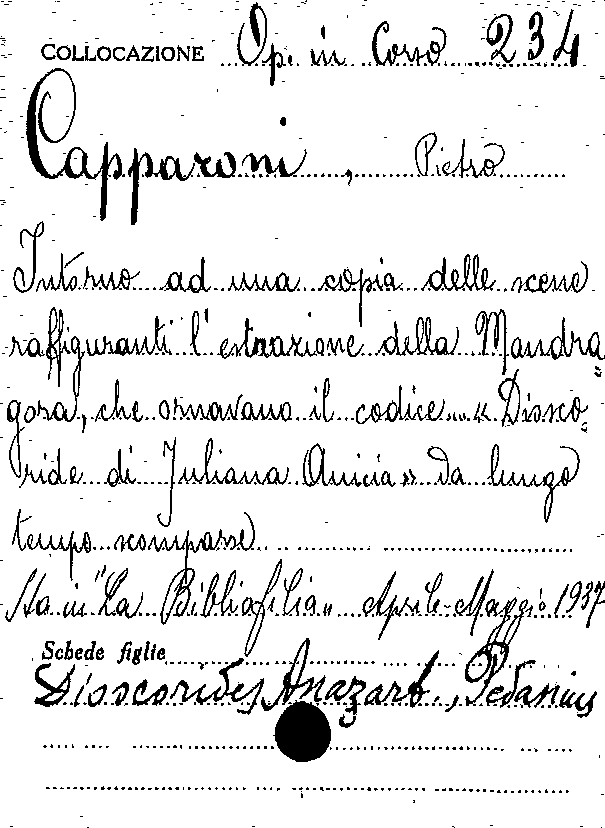 COLLOCAZIONE Op. in Corso 234
Capparoni, Pietro
Intorno ad una copia delle scene
raffiguranti l'estrazione della Mandra=
gora, che ornavano il codice « Diosco=
ride di Juliana Anicia » da lungo
tempo scomparse
Sta in "La Bibliofilia" Aprile-Maggio 1937
Schede figlie
Dioscorides Anazarb., Pedanius